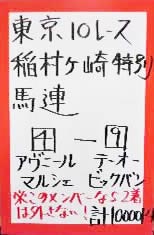 東京10レース
稲村ヶ崎特別
馬連
4 ― 9
アヴニール テーオー
マルシェ ビックバン
このメンバーなら2着
は外さない! 計10000円